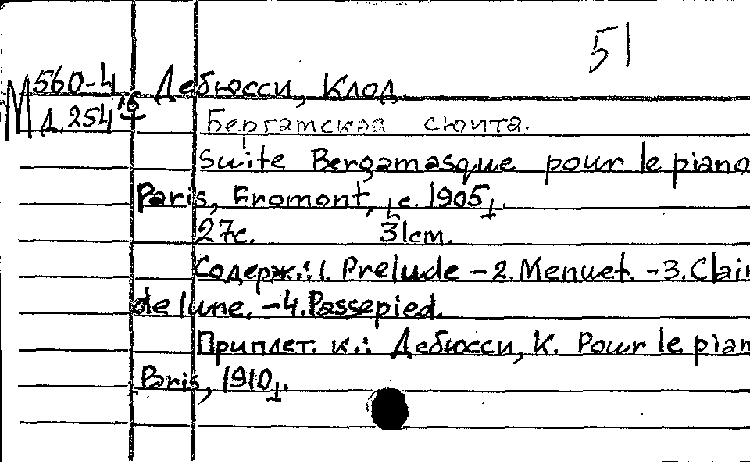 51
М 560-4 Дебюсси, Клод
Д. 254 Бергамская сюита.
Suite Bergamasque pour le piano
Paris, Fromont, [c. 1905].
27с. 31см.
Содерж.: 1. Prelude - 2. Menuet. - 3. Clair
de lune. - 4. Passepied.
Приплет. к.: Дебюсси, К. Pour le pian
Paris, 1910].